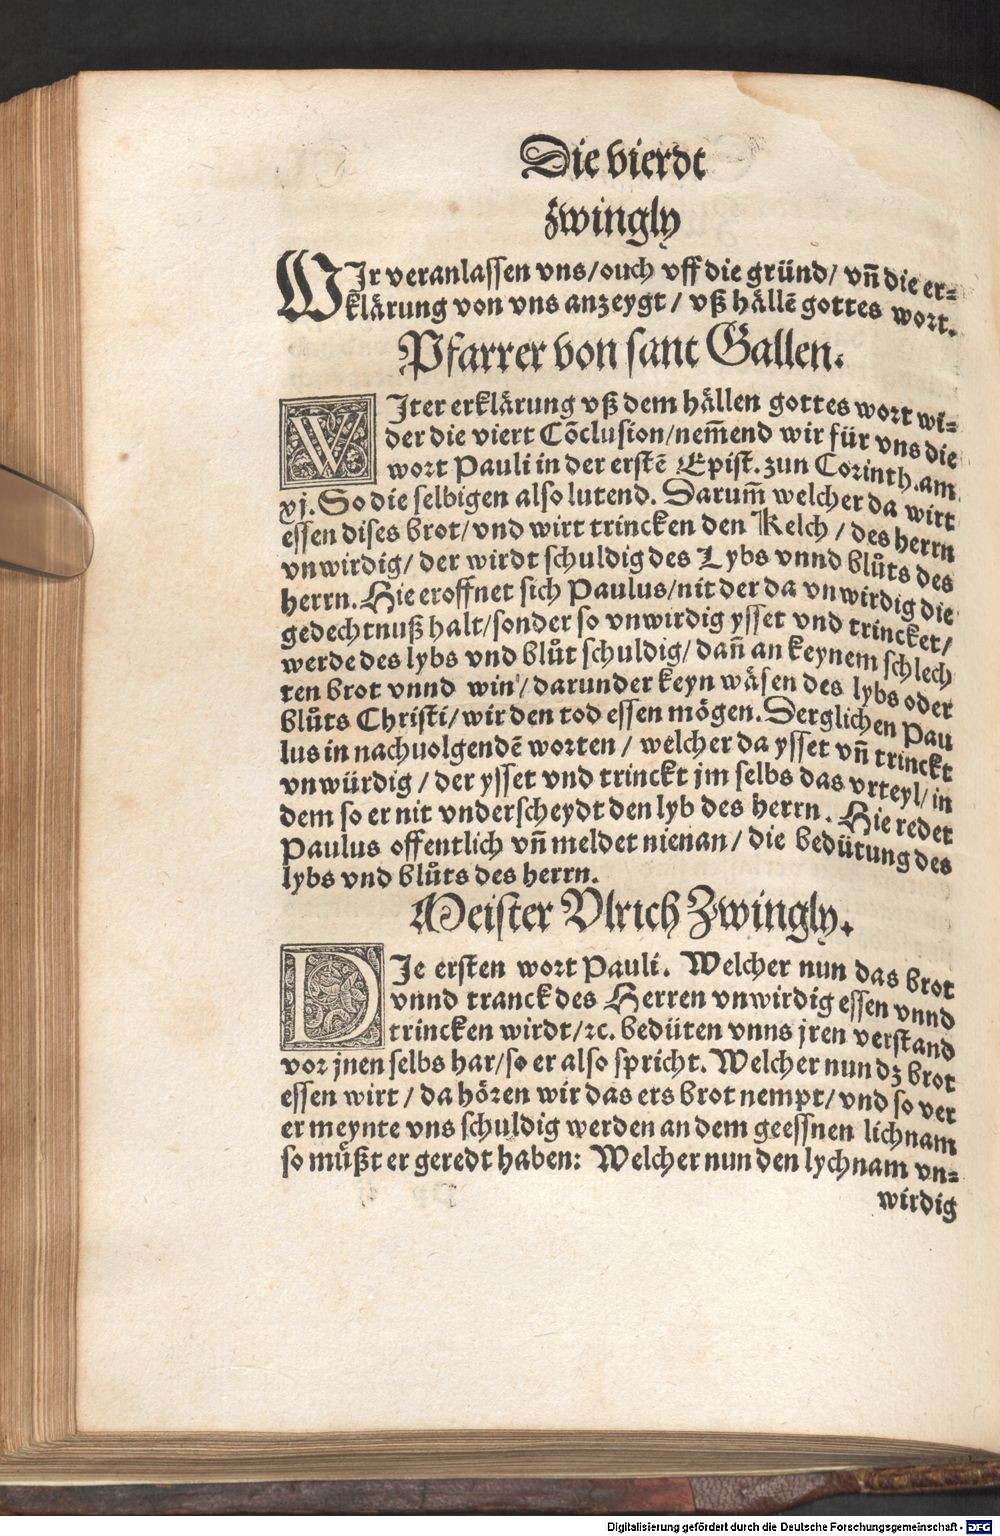 Die vierdt
zwingly
WJr veranlassen vns/ouch vff die gründ/ vñ die er⸗
klärung von vns anzeygt / vß hällẽ gottes wort.
Pfarrer von sant Gallen.
WJter erklärung vß dem hällen gottes wort wi⸗
der die viert Cõclusion/nem̃end wir für vns die
wort Pauli in der erstẽ Epist. zun Corinth. am
xj. So die selbigen also lutend. Darum̃ welcher da wirt
essen dises brot/vnd wirt trincken den Kelch / des herrn
vnwirdig/ der wirdt schuldig des Lybs vnnd blůts des
herrn. Hie eroffnet sich Paulus/nit der da vnwirdig die
gedechtnuß halt/sonder so vnwirdig ysset vnd trincket/
werde des lybs vnd blůt schuldig/ dañ an keynem schlech
ten brot vnnd win/ darunder keyn wäsen des lybs oder
blůts Christi/wir den tod essen mögen. Derglichen Pau
lus in nachuolgendẽ worten / welcher da ysset vñ trinckt
vnwürdig / der ysset vnd trinckt jm selbs das vrteyl/ in
dem so er nit vnderscheydt den lyb des herrn. Hie redet
Paulus offentlich vñ meldet nienan/ die bedütung des
lybs vnd blůts des herrn.
Meister Vlrich Zwingly.
DJe ersten wort Pauli. Welcher nun das brot
vnnd tranck des Herren vnwirdig essen vnnd
trincken wirdt/ꝛc. bedüten vnns jren verstand
vor jnen selbs har/so er also spricht. Welcher nun dz brot
essen wirt / da hören wir das ers brot nempt/ vnd so ver
er meynte vns schuldig werden an dem geessnen lichnam
so můßt er geredt haben: Welcher nun den lychnam vn⸗
wirdig
Digitalisierung gefördert durch die Deutsche Forschungsgemeinschaft - DFG